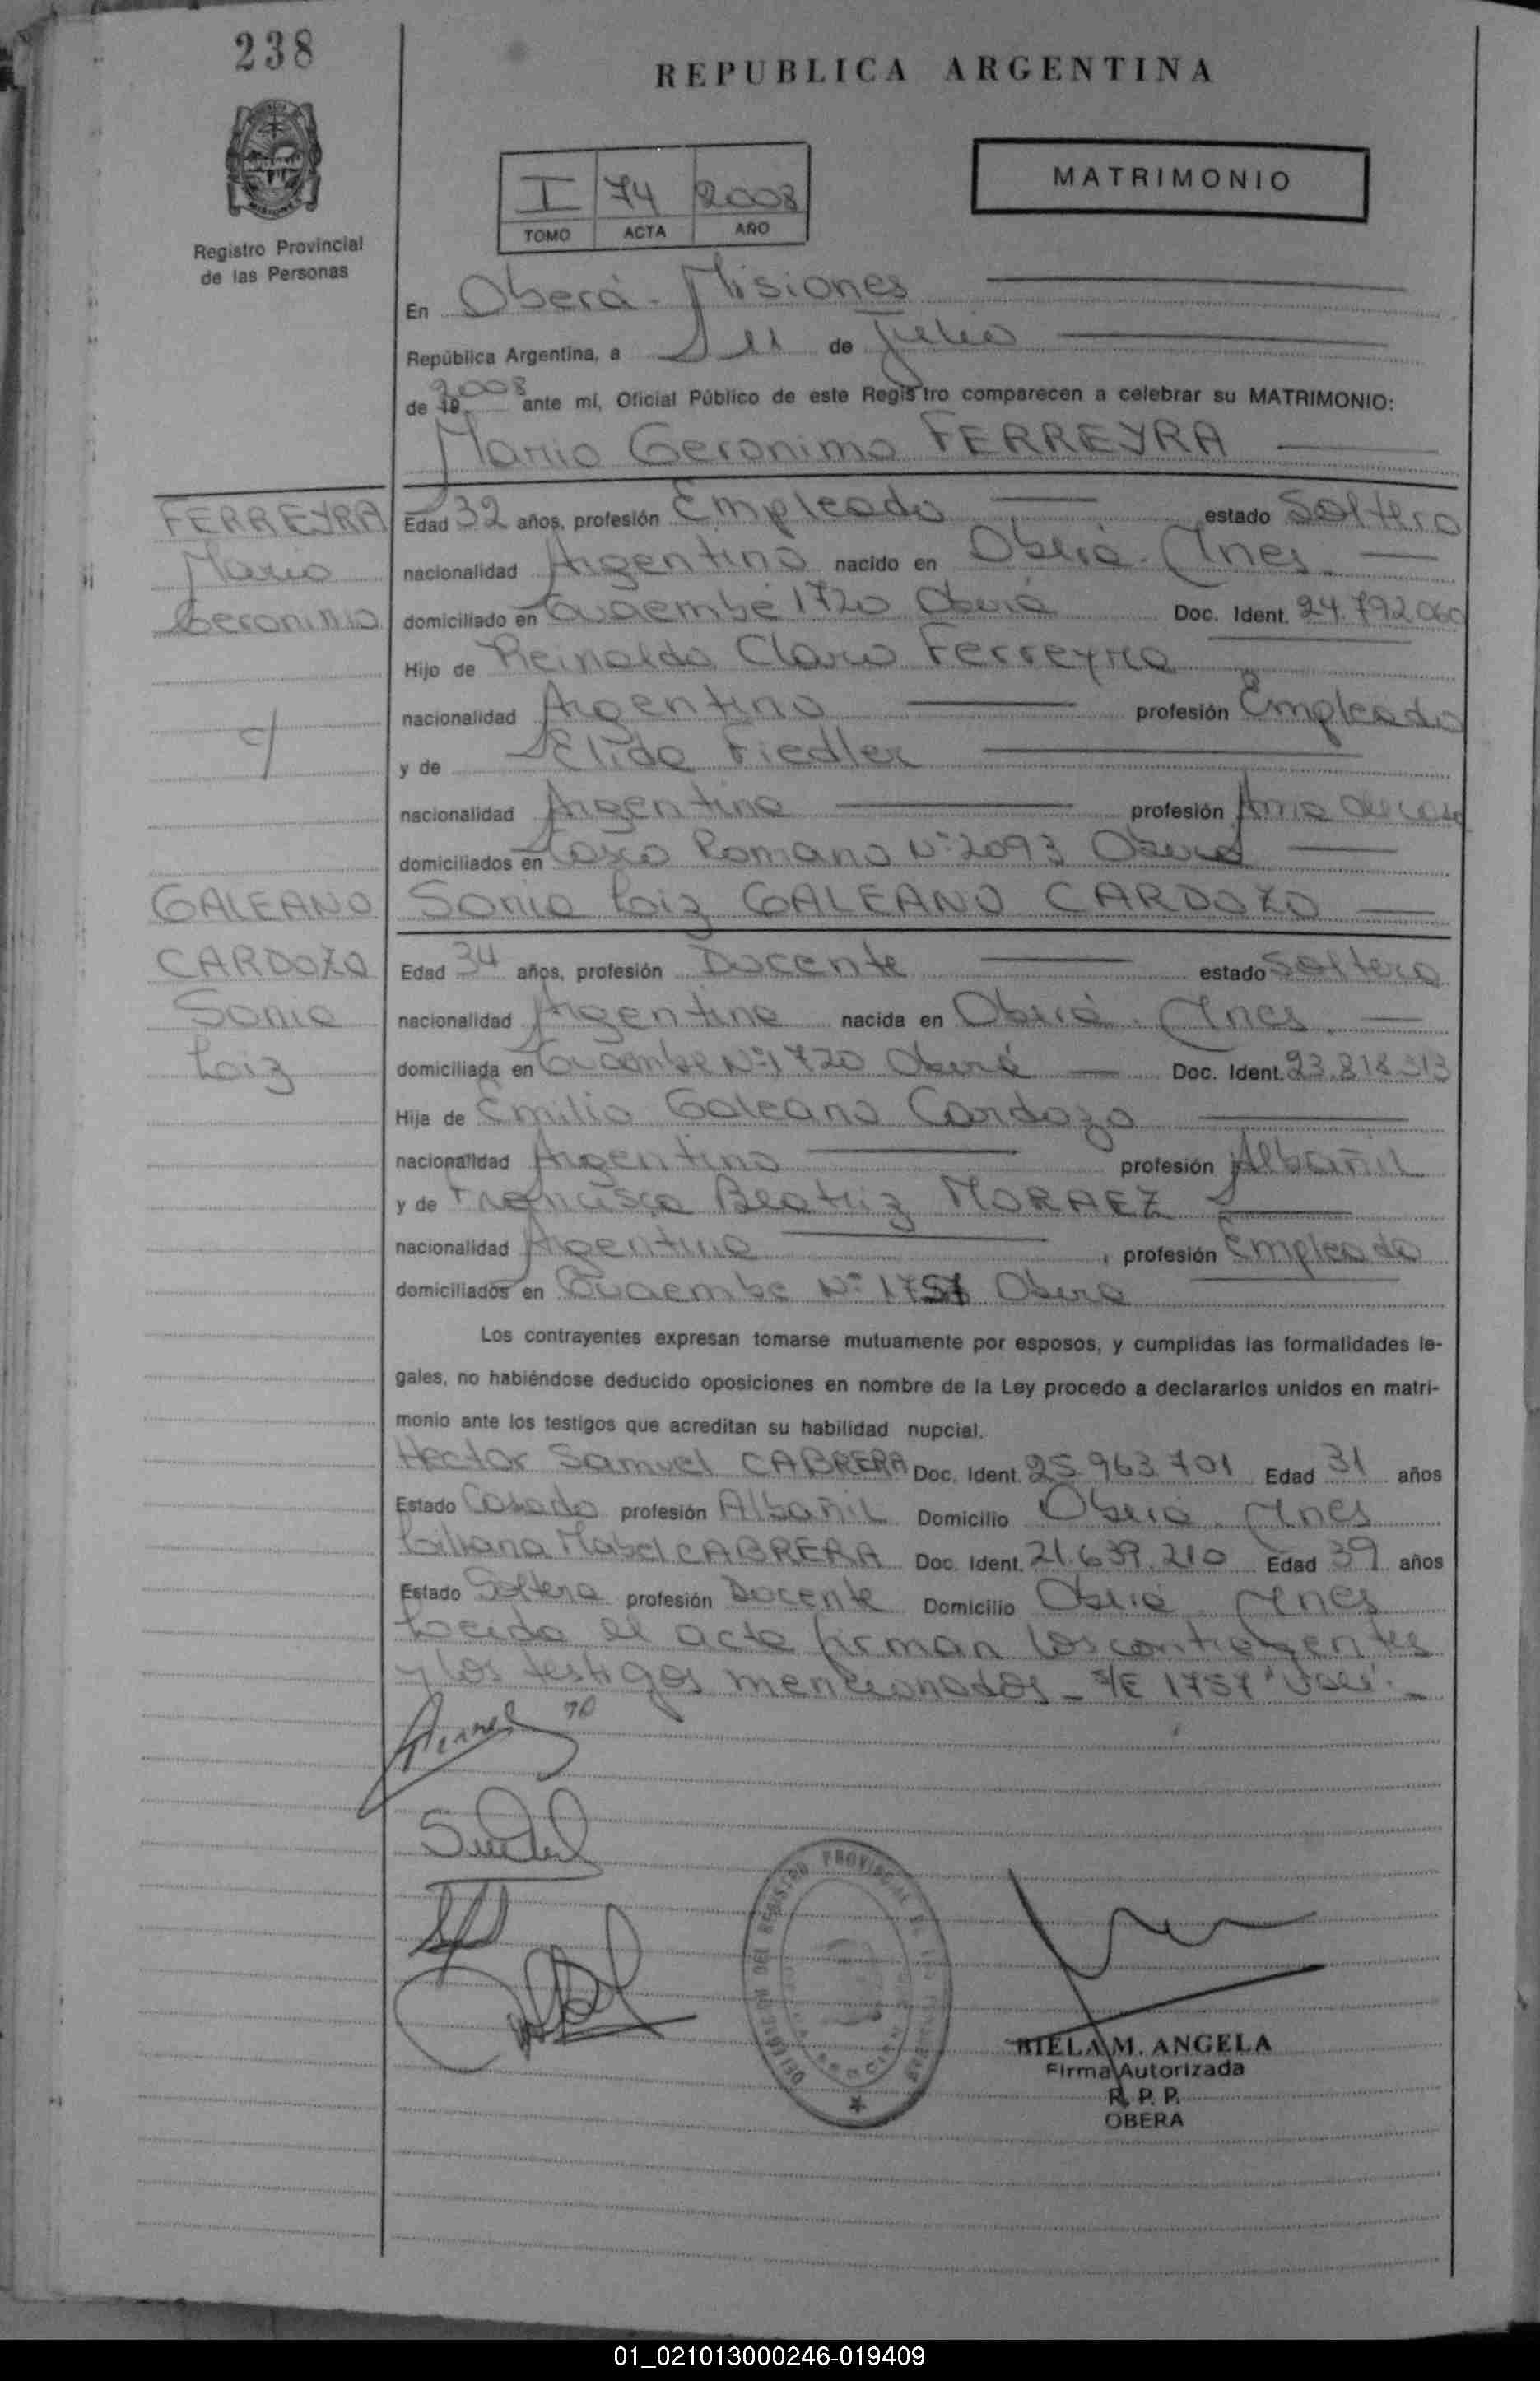 238
REPUBLICA ARGENTINA
MATRIMONIO
I 74 2008
TOMO ACTA AÑO
Registro Provincial
de las Personas
En Oberá - Misiones
República Argentina, a 11 de Julio
de 19 2008 ante mí, Oficial Público de este Registro comparecen a celebrar su MATRIMONIO:
Mario Geronimo FERREYRA
FERREYRA
Mario
Geronimo
c/
GALEANO
CARDOZO
Sonia
Loiz
Edad 32 años, profesión Empleado estado Soltero
nacionalidad Argentino nacido en Oberá - Mnes
domiciliado en Guaembé 1720 Oberá Doc. Ident. 24.792.060
Hijo de Reinaldo Claro Ferreyra
nacionalidad Argentino profesión Empleado
y de Elida Fiedler
nacionalidad Argentina profesión Ama de casa
domiciliados en Romano Nº 2093 Oberá
Sonia Loiz GALEANO CARDOZO
Edad 34 años, profesión Docente estado Soltera
nacionalidad Argentina nacida en Oberá - Mnes.
domiciliada en Guaembé Nº 1720 Oberá Doc. Ident. 23.818.313
Hija de Emilio Galeano Cardozo
nacionalidad Argentino profesión Albañil
y de Francisca Beatriz MORAEZ
nacionalidad Argentina , profesión Empleada
domiciliados en Guaembe Nº 1757 Obera
Los contrayentes expresan tomarse mutuamente por esposos, y cumplidas las formalidades le-
gales, no habiéndose deducido oposiciones en nombre de la Ley procedo a declararlos unidos en matri-
monio ante los testigos que acreditan su habilidad nupcial.
Hector Samuel CABRERA Doc. Ident. 25.963.701 Edad 31 años
Estado Casado profesión Albañil Domicilio Oberá - Mnes
Liliana Mabel CABRERA Doc. Ident. 21.639.210 Edad 39 años
Estado Soltera profesión Docente Domicilio Oberá - Mnes
Leida el acta firman los contrayentes
y los testigos mencionados - S/E 1757 "Vale" -
DELEGACION DEL REGISTRO PROVINCIAL DE LAS PERSONAS
BIELA M. ANGELA
Firma Autorizada
R. P. P.
OBERA
01_021013000246-019409